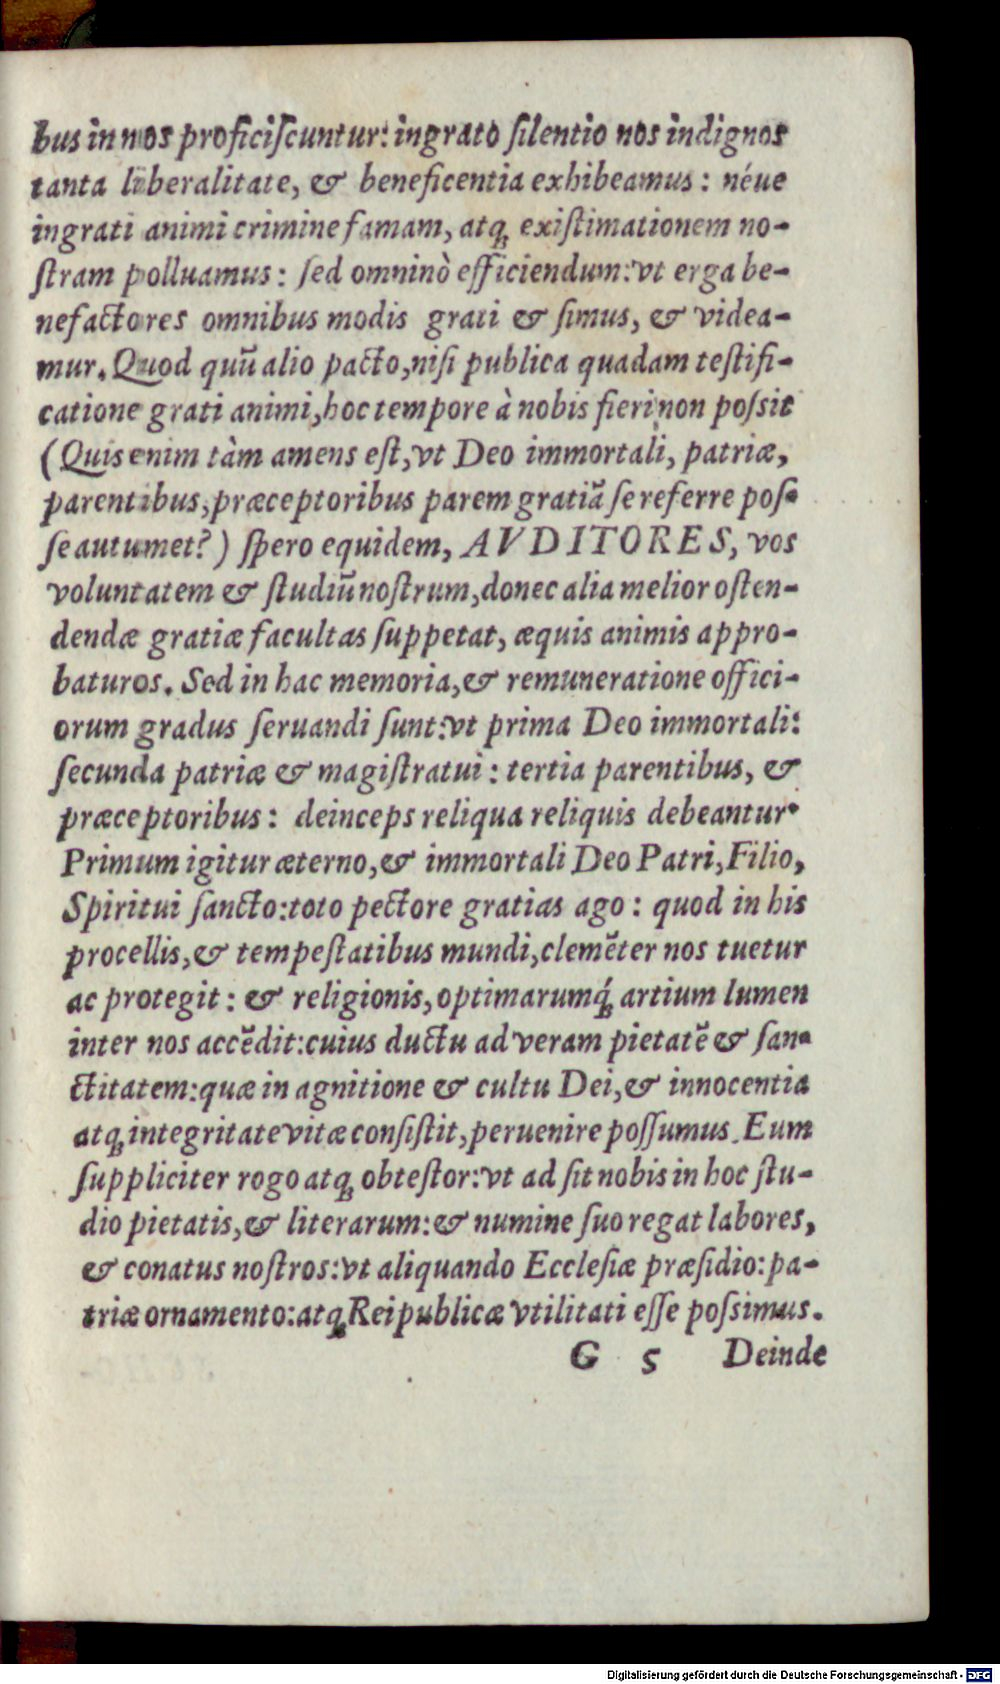 bus in nos proficiſcuntur: ingrato ſilentio nos indignos
tanta liberalitate, & beneficentia exhibeamus: néue
ingrati animi crimine famam, atq; exiſtimationem no-
ſtram polluamus: ſed omninò efficiendum: vt erga be-
nefactores omnibus modis grati & ſimus, & videa-
mur. Quod quũ alio pacto, niſi publica quadam teſtifi-
catione grati animi, hoc tempore à nobis fieri non poſsit
(Quis enim tàm amens eſt, vt Deo immortali, patriæ,
parentibus, præceptoribus parem gratiã ſe referre poſ-
ſe autumet?) ſpero equidem, AVDITORES, vos
voluntatem & ſtudiũ noſtrum, donec alia melior oſten-
dendæ gratiæ facultas ſuppetat, æquis animis appro-
baturos. Sed in hac memoria, & remuneratione offici-
orum gradus ſeruandi ſunt: vt prima Deo immortali:
ſecunda patriæ & magiſtratui: tertia parentibus, &
præceptoribus: deinceps reliqua reliquis debeantur.
Primum igitur æterno, & immortali Deo Patri, Filio,
Spiritui ſancto: toto pectore gratias ago: quod in his
procellis, & tempeſtatibus mundi, clemẽter nos tuetur
ac protegit: & religionis, optimarumq́; artium lumen
inter nos accẽdit: cuius ductu ad veram pietatẽ & ſan-
ctitatem: quæ in agnitione & cultu Dei, & innocentia
atq; integritate vitæ conſiſtit, peruenire poſſumus. Eum
ſuppliciter rogo atq; obteſtor: vt ad ſit nobis in hoc ſtu-
dio pietatis, & literarum: & numine ſuo regat labores,
& conatus noſtros: vt aliquando Eccleſiæ præſidio: pa-
triæ ornamento: atq; Reipublicæ vtilitati eſſe poſsimus.
G 5 Deinde
Digitalisierung gefördert durch die Deutsche Forschungsgemeinschaft - DFG